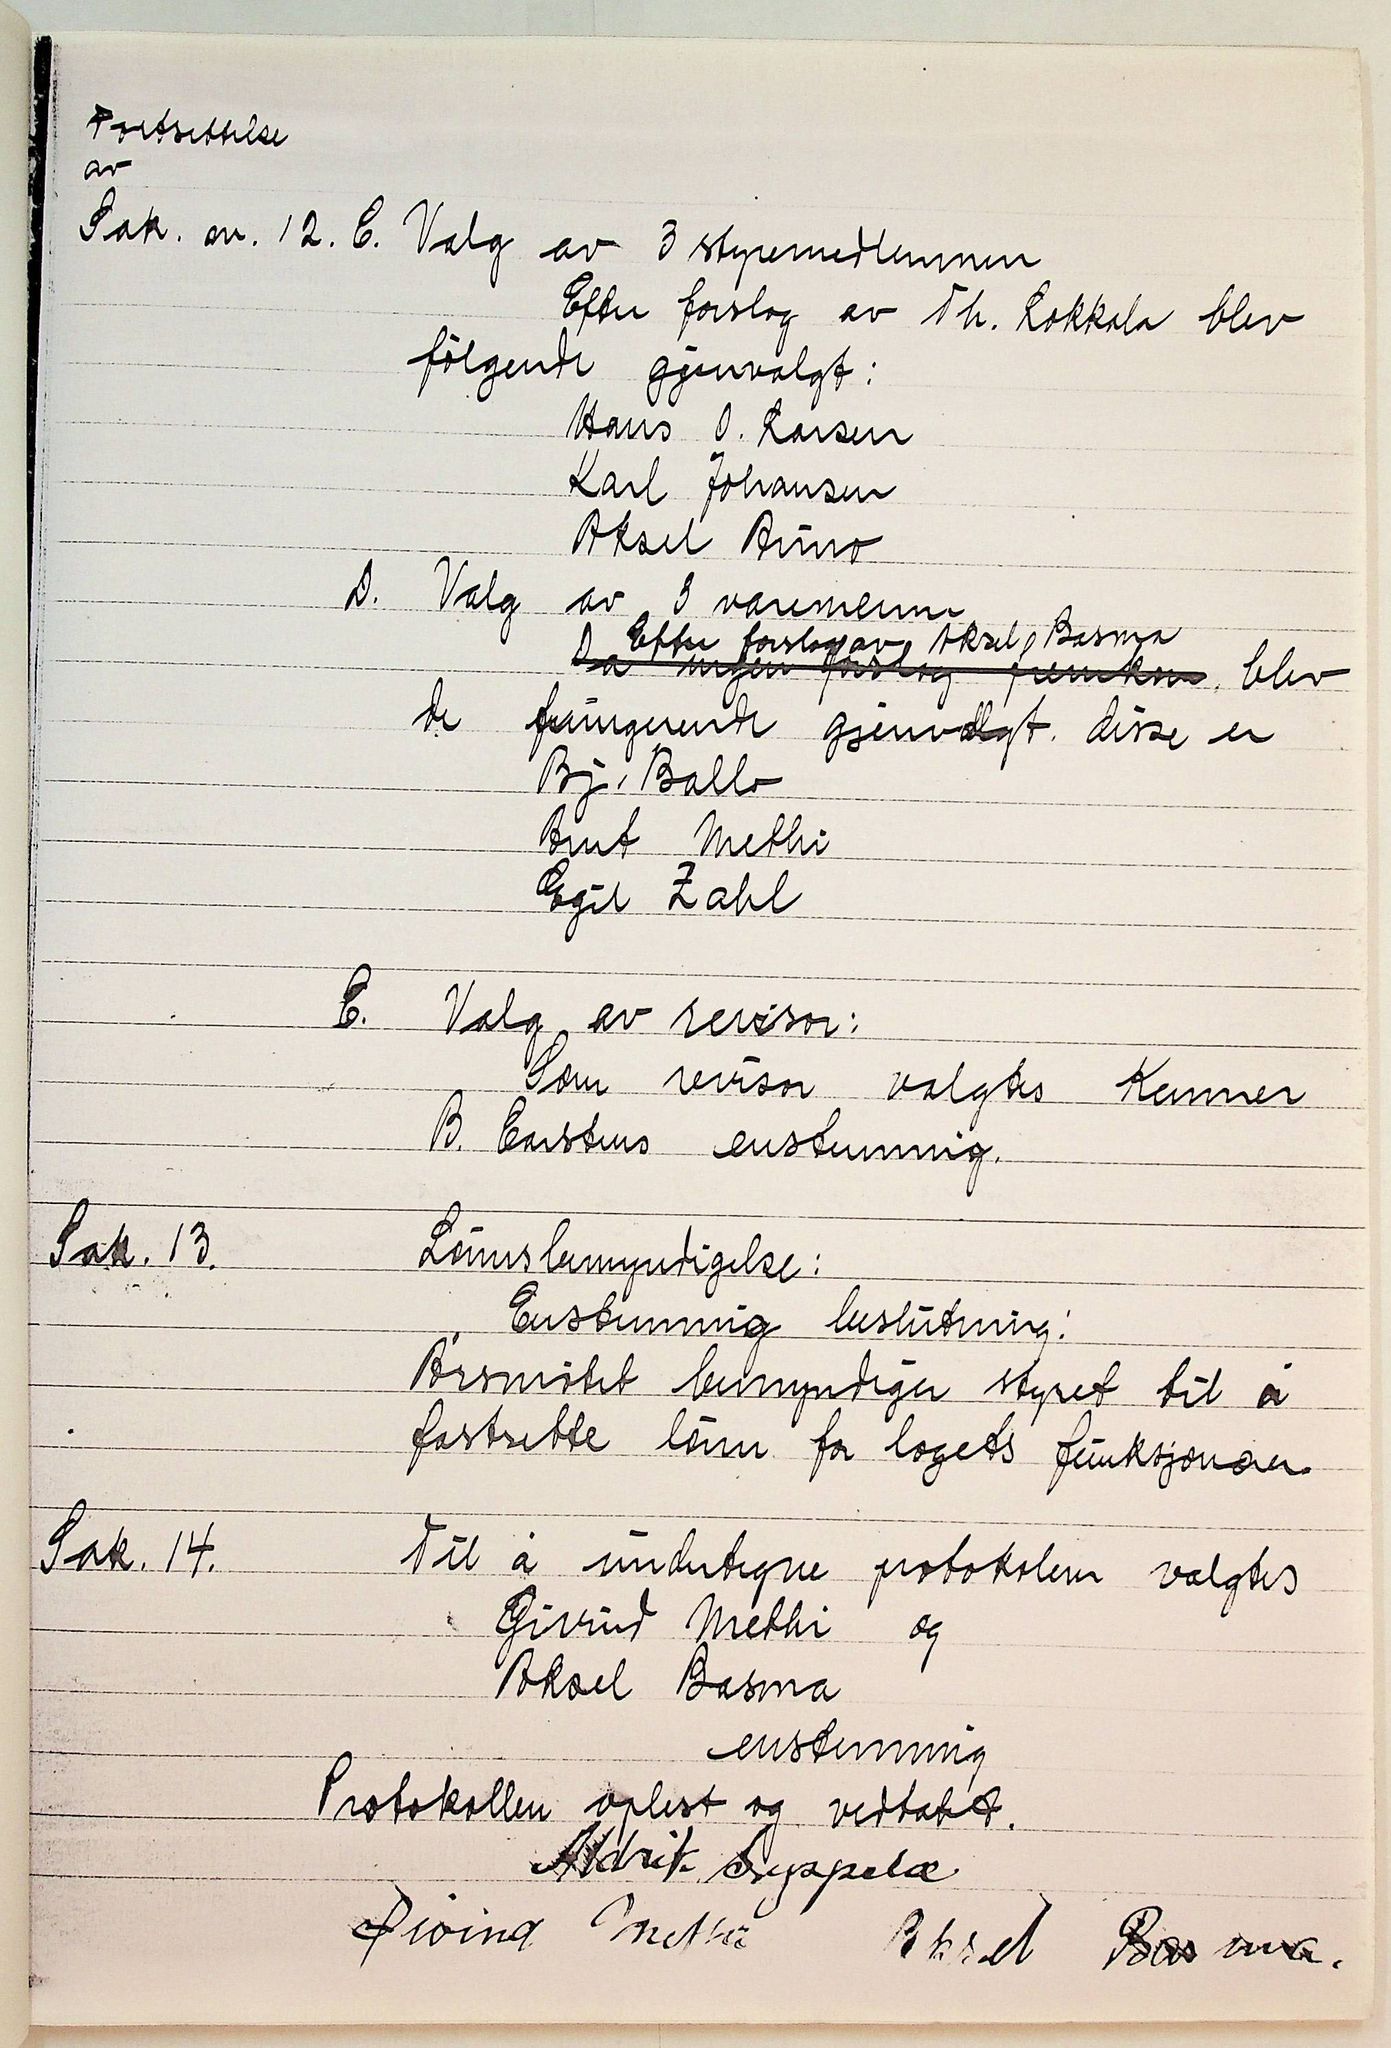 Fortsettelse
av
Sak. nr. 12. C. Valg av 3 styremedlemmer
Efter forslag av Th. Lokkala blev
følgende gjenvalgt:
Hans O. Larsen
Karl Johansen
Aksel Aune
D. Valg av 3 varemenn
Efter forslag av Aksel Basma
Da ingen forslag fremkom, blev
de fungerende gjenvalgt. disse er
Bj. Ballo
Arnt Methi
Egil Zahl
E. Valg av revisor:
Som revisor valgtes Kemner
B. Carstens enstemmig.
Sak. 13. Lønnsbemyndigelse:
Enstemmig beslutning:
Årsmøtet bemyndiger styret til å
fastsette lønn for lagets funksjonær
Sak. 14. Til å undertegne protokolen valgtes
Eivind Methi og
Aksel Basma
enstemmig
Protokollen oplest og vedtatt.
Aldrik
Eivind Methi Aksel Basma.